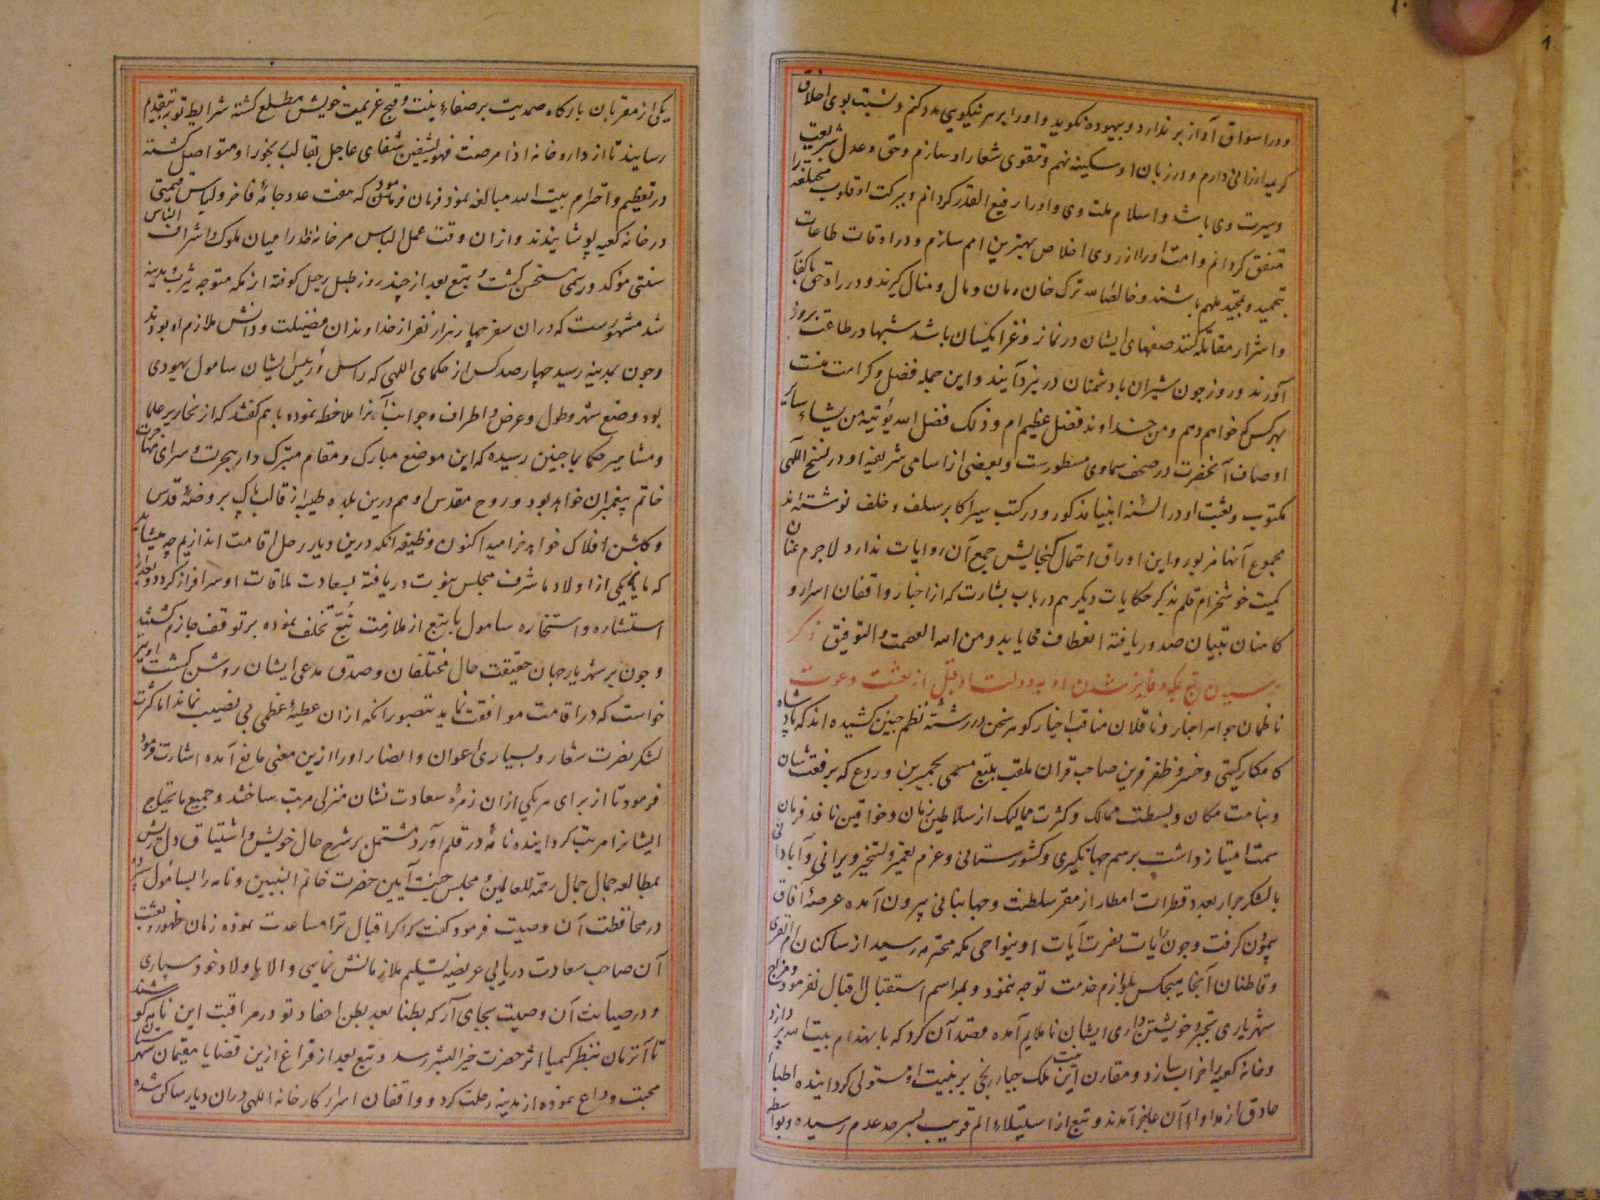 ودر اسواق آواز برندارد و بیهوده نگوید و او را بر هر نیکویی مدد کنم و نسبت بوی اخلاق
کریم ارزانی دارم و در زبان او سکینه نهم و تقوی شعار او سازم و حق و عدل شریعت
وسیرت وی باشد و اسلام ملت وی و او را رفیع القدر کردانم و ببرکت او قلوب مختلفه را
متفق کردانم و امت او را از روی اخلاص بهترین امم سازم و در اوقات طاعات
بتحمید و تمجید ملهم باشند و خالصا لله ترک خان و مان و مال و منال گیرند و در راه حق با کفار
و اشرار مقاتله کنند صفهای ایشان در نماز و غزا یکسان باشد شبها در طاعت بروز
آورند و روز چون شیران با دشمنان در نبرد آیند و این جمله فضل و کرامت منست
بهر کس که خواهم دهم و من خداوند فضل عظیم ام و ذلک فضل الله یؤتیه من یشاء سایر
اوصاف آنحضرت در صحف سماوی مسطورست و بعضی از اسامی شریفه او در نسخ الهی
مکتوب و نعت او در السنه انبیا مذکور و در کتب سیر اکابر سلف و خلف نوشته اند
مجموع آنها مزبور و این اوراق احتمال گنجایش جمع آن روایات ندارد لاجرم عنان
کمیت خوشخرام قلم بذکر حکایات دیگر هم در باب بشارت که از احبار واقفان اسرار و
کاهنان بتبیان صدور یافته انعطاف می یابد و من الله العصمت و التوفیق ذکر
رسیدن تبع بمکه و فایز شدن او به دولت او قبل از بعثت و دعوت
ناظمان جواهر اخبار و ناقلان مناقب اخیار کوهر سخن در رشته نظم چنین کشیده اند که پادشاه
کامکار کیتی و خسرو ظفر قرین صاحب قران ملقب بتبع مسمی بحمیر بن وردع که برفعت شان
و نباهت مکان و بسطت ممالک و کثرت ممالیک از سلاطین زمان و خواقین نافذ فرمان
سمت امتیاز داشت برسم جهانگیری و کشورستانی و عزم تعمیر و تسخیر ویرانی و آبادانی
با لشکر جرار بعدد قطرات امطار از مقر سلطنت و جهانبانی بیرون آمده عرصه آفاق
پیمودن گرفت و چون رایات نصرت آیات او بنواحی مکه محترمه رسید از ساکنان ام القری
و قاطنان آنجا هیچکس بلوازم خدمت توجه ننمود و بمراسم استقبال اقبال نفرمود و مزاج
شهریاری تجبر و خویشتن داری ایشان ناملایم آمده قصد آن کرد که بانهدام بیت الله پردازد
و خانه کعبه را خراب سازد و مقارن این نیت ملک جبار رنجی بر بنیت او مستولی کردانیده اطباء
حاذق از مداوای آن عاجز آمدند و تبع از استیلاء الم قریب بسرحد عدم رسیده و بواسطه
یکی از مقربان بارکاه صمدیت بر صفاء نیت و قبح عزیمت خویش مطلع کشته شرایط توبه بتقدیم
رسانید تا از داروخانه اذا مرضت فهو یشفین شفای عاجل بقالب رنجور او متواصل کشته
در تعظیم و احترام بیت الله مبالغه نموده فرمان فرمود که هفت عدد جامه فاخر و لباس قیمتی
در خانه کعبه پوشانیدند و از آن وقت عمل الباس مر خانه خدا را میان ملوک و اشراف الناس
سنتی مؤکد و رسمی مستحسن کشت و تبع بعد از چند روز طبل رحیل کوفته از مکه متوجه یثرب و مدینه
شد مشهورست که در آن سفر چهار هزار نفر از خداوندان فضیلت و دانش ملازم او بودند
و چون بمدینه رسید چهارصد کس از حکمای الهی که راس و رییس ایشان سامول یهودی
بود وضع شهر و طول و عرض و اطراف و جوانب آنرا ملاحظه نموده با هم گفتند که از نحاریر علما
و مشاهیر حکما بما چنین رسیده که این موضع مبارک و مقام متبرک دار هجرت و سرای مهاجرت
خاتم پیغمبران خواهد بود و روح مقدس او هم درین بلده طیبه از قالب پاک بروضه قدس
و گلشن افلاک خواهد خرامید اکنون وظیفه آنکه درین دیار رحل اقامت اندازیم چه میشاید
که ما یا یکی از اولاد ما شرف مجلس نبوت دریافته بسعادت ملاقات او سرافراز کردد و بعد از
استشاره و استخاره سامول با تبع از ملازمت تبع تخلف نموده بر توقف جازم کشتند
و چون بر شهریار جهان حقیقت حال مختلفان و صدق مدعی ایشان روشن کشت او نیز
خواست که در اقامت موافقت نماید بتصور آنکه از آن عطیه عظمی بی نصیب نماند اما کثرت
لشکر نصرت شعار و بسیاری اعوان و انصار او را ازین معنی مانع آمده اشارت فرمود
فرمود تا از برای هر یکی از آن زمره سعادت نشان منزلی مرتب ساختند و جمیع مایحتاج
ایشانرا مرتب کردانیده نامه در قلم آورد مشتمل بر شرح حال خویش و اشتیاق دل ریش
بمطالعه جمال جمال رحمة للعالمین و مجلس جنت آیین حضرت خاتم النبیین و نامه را بسامول سپرده
در محافظت آن وصیت فرمود گفت که اگر اقبال ترا مساعدت نموده زمان ظهور و بعثت
آن صاحب سعادت دریابی عریضه تسلیم ملازمانش نمایی و الا باولاد خود سپاری
و در صیانت آن وصیت بجای آر که بطنا بعد بطن احفاد تو در مراقبت این نامه کوشند
تا آنزمان بنظر کیمیا اثر حضرت خیر البشر رسد و تبع بعد از فراغ ازین قضایا مقیمان شهرستان
محبت وداع نموده از مدینه رحلت کرد و واقفان اسرار کارخانه الهی در آن دیار ساکن شده